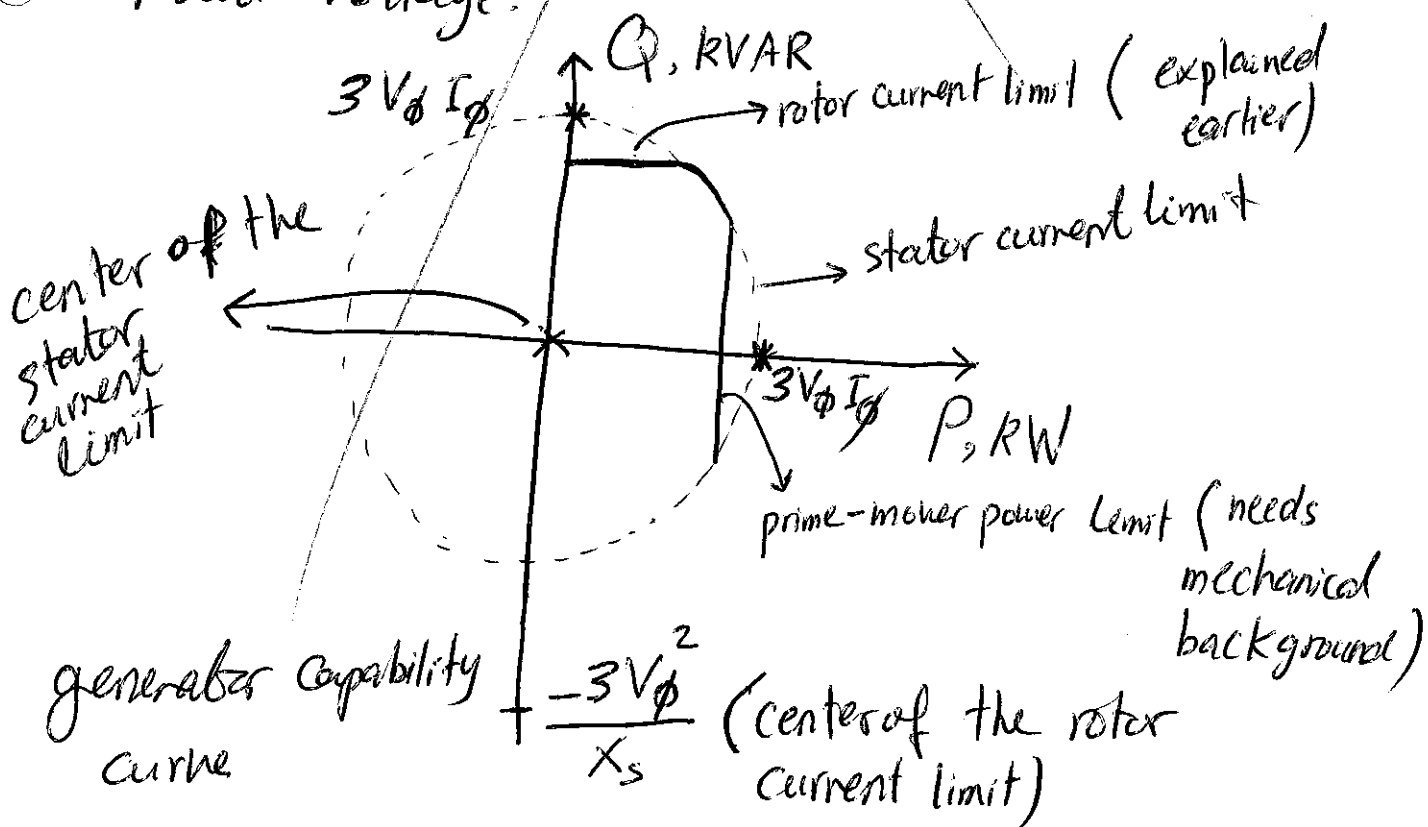 Voltage.
Q, kVAR
3 Vφ Iφ
rotor current limit ( explained
earlier)
stator current limit
center of the
stator
current
limit
3 Vφ Iφ
P, kW
prime-mover power limit ( needs
mechanical
background)
generator capability
curve
-3 Vφ²
Xs
(center of the rotor
current limit)